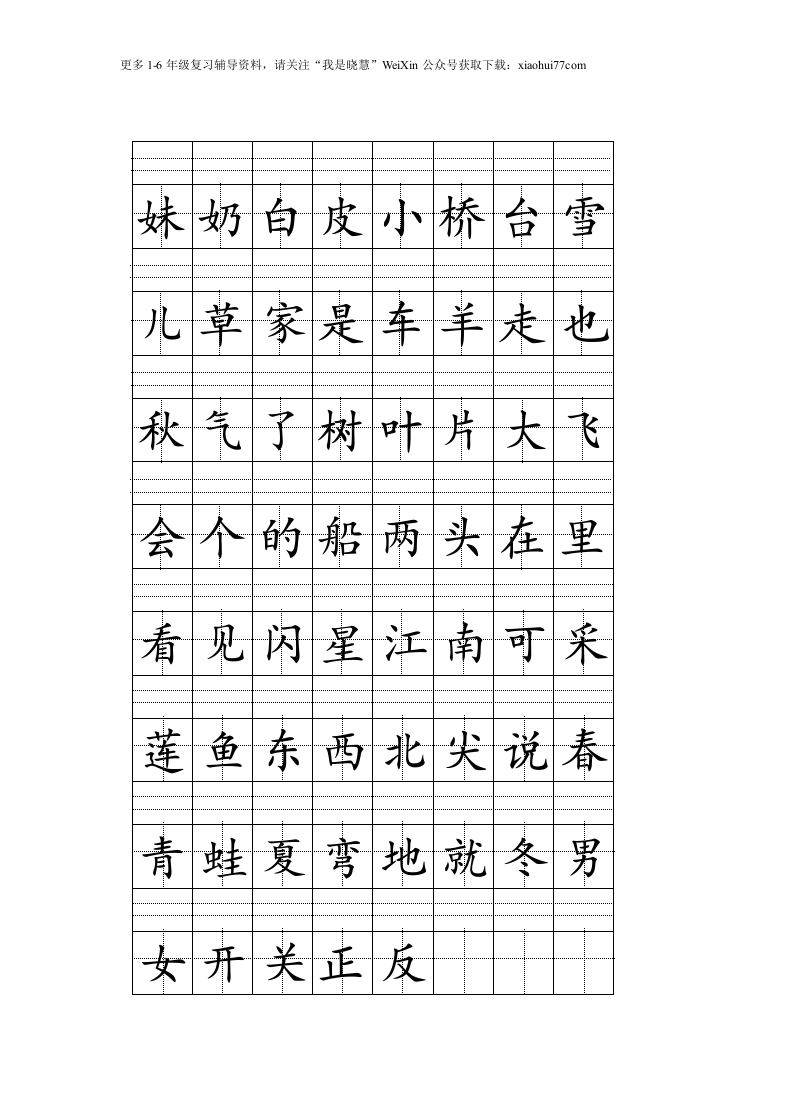 更多 1-6 年级复习辅导资料，请关注“我是晓慧”WeiXin 公众号获取下载：xiaohui77com
妹 奶 白 皮 小 桥 台 雪
儿 草 家 是 车 羊 走 也
秋 气 了 树 叶 片 大 飞
会 个 的 船 两 头 在 里
看 见 闪 星 江 南 可 采
莲 鱼 东 西 北 尖 说 春
青 蛙 夏 弯 地 就 冬 男
女 开 关 正 反